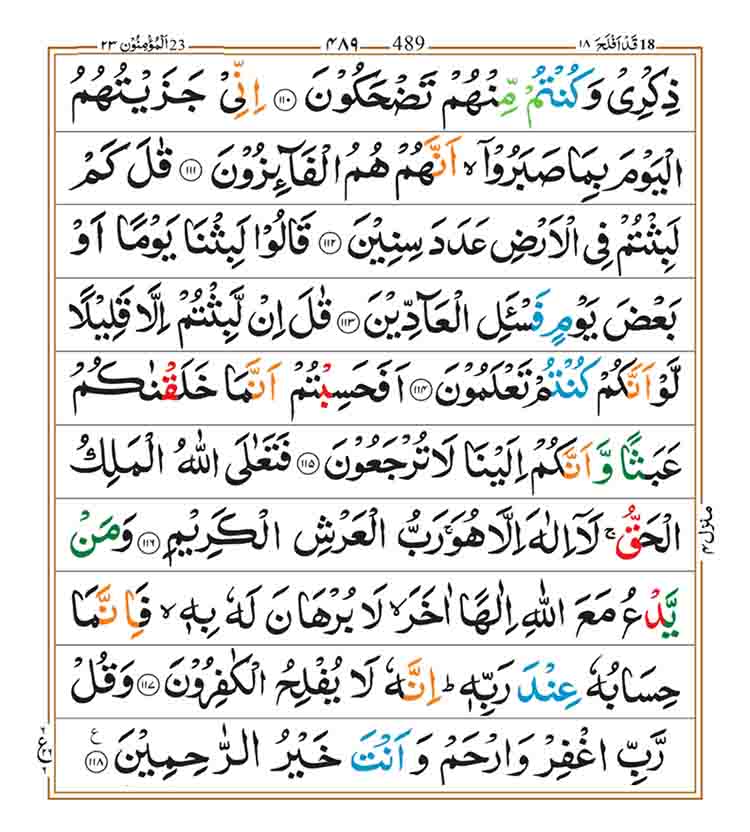 18 قَدْ اَفْلَحَ ١٨ 489 ٤٨٩ 23 اَلْمُؤْمِنُوْن ٢٣
ذِكْرِىْ وَكُنْتُمْ مِّنْهُمْ تَضْحَكُوْنَ ۝١١٠ اِنِّىْ جَزَيْتُهُمُ
الْيَوْمَ بِمَا صَبَرُوْۤا ۙ اَنَّهُمْ هُمُ الْفَآئِزُوْنَ ۝١١١ قٰلَ كَمْ
لَبِثْتُمْ فِى الْاَرْضِ عَدَدَ سِنِيْنَ ۝١١٢ قَالُوْا لَبِثْنَا يَوْمًا اَوْ
بَعْضَ يَوْمٍ فَسْـَٔلِ الْعَآدِّيْنَ ۝١١٣ قٰلَ اِنْ لَّبِثْتُمْ اِلَّا قَلِيْلًا
لَّوْ اَنَّكُمْ كُنْتُمْ تَعْلَمُوْنَ ۝١١٤ اَفَحَسِبْتُمْ اَنَّمَا خَلَقْنٰكُمْ
عَبَثًا وَّاَنَّكُمْ اِلَيْنَا لَا تُرْجَعُوْنَ ۝١١٥ فَتَعٰلَى اللّٰهُ الْمَلِكُ
الْحَقُّ ۚ لَاۤ اِلٰهَ اِلَّا هُوَ ۚ رَبُّ الْعَرْشِ الْكَرِيْمِ ۝١١٦ وَمَنْ
يَّدْعُ مَعَ اللّٰهِ اِلٰهًا اٰخَرَ ۙ لَا بُرْهَانَ لَهٗ بِهٖ ۙ فَاِنَّمَا
حِسَابُهٗ عِنْدَ رَبِّهٖ ؕ اِنَّهٗ لَا يُفْلِحُ الْكٰفِرُوْنَ ۝١١٧ وَقُلْ
رَّبِّ اغْفِرْ وَارْحَمْ وَاَنْتَ خَيْرُ الرّٰحِمِيْنَ ۝١١٨ ع
منزل ٤